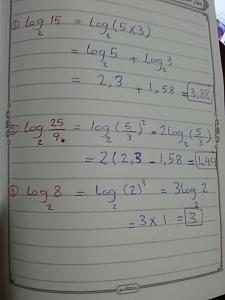 ① log₂15 = log₂(5×3)
= log₂5 + log₂3
= 2,3 + 1,58 = 3,88
② log₂ 25/9 = log₂(5/3)² = 2log₂(5/3)
= 2(2,3 - 1,58 = 1,44
③ log₂8 = log₂(2)³ = 3log₂2
= 3×1 = 3